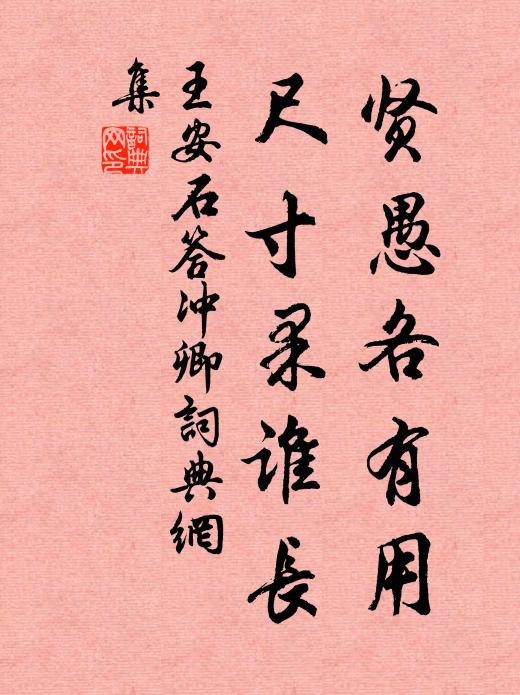 贤愚各有用
尺寸果谁長
王安石答冲卿詞典網
集
詞典網印